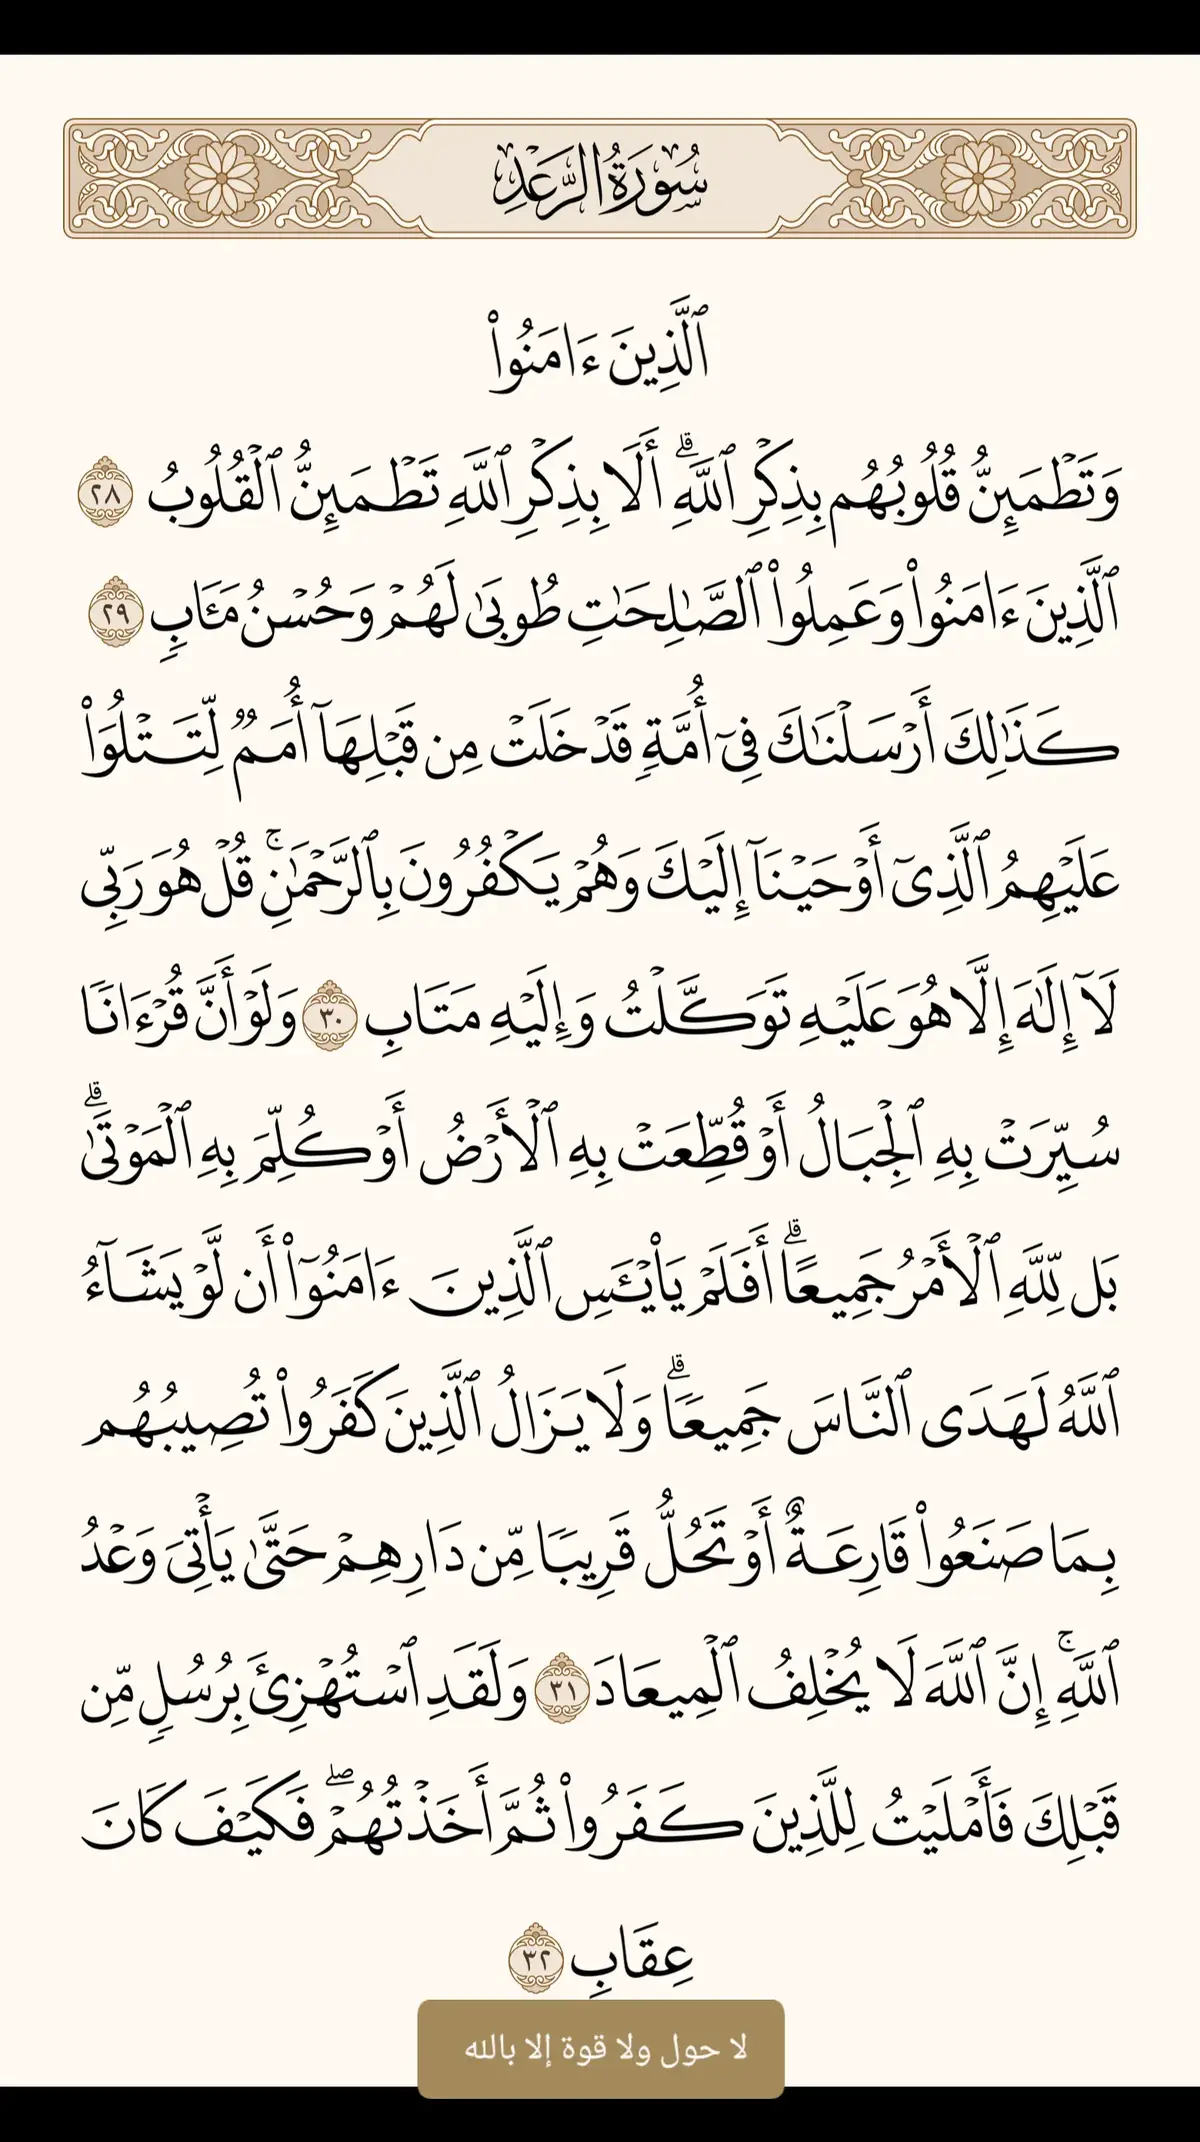 سُورَةُ الرَّعْدِ
ٱلَّذِينَ ءَامَنُوا۟
وَتَطْمَئِنُّ قُلُوبُهُم بِذِكْرِ ٱللَّهِ ۗ أَلَا بِذِكْرِ ٱللَّهِ تَطْمَئِنُّ ٱلْقُلُوبُ ٢٨
ٱلَّذِينَ ءَامَنُوا۟ وَعَمِلُوا۟ ٱلصَّـٰلِحَـٰتِ طُوبَىٰ لَهُمْ وَحُسْنُ مَـَٔابٍ ٢٩
كَذَٰلِكَ أَرْسَلْنَـٰكَ فِىٓ أُمَّةٍ قَدْ خَلَتْ مِن قَبْلِهَآ أُمَمٌ لِّتَتْلُوَا۟
عَلَيْهِمُ ٱلَّذِىٓ أَوْحَيْنَآ إِلَيْكَ وَهُمْ يَكْفُرُونَ بِٱلرَّحْمَـٰنِ ۚ قُلْ هُوَ رَبِّى
لَآ إِلَـٰهَ إِلَّا هُوَ عَلَيْهِ تَوَكَّلْتُ وَإِلَيْهِ مَتَابِ ٣٠ وَلَوْ أَنَّ قُرْءَانًا
سُيِّرَتْ بِهِ ٱلْجِبَالُ أَوْ قُطِّعَتْ بِهِ ٱلْأَرْضُ أَوْ كُلِّمَ بِهِ ٱلْمَوْتَىٰ ۗ
بَل لِّلَّهِ ٱلْأَمْرُ جَمِيعًا ۗ أَفَلَمْ يَا۟يْـَٔسِ ٱلَّذِينَ ءَامَنُوٓا۟ أَن لَّوْ يَشَآءُ
ٱللَّهُ لَهَدَى ٱلنَّاسَ جَمِيعًا ۗ وَلَا يَزَالُ ٱلَّذِينَ كَفَرُوا۟ تُصِيبُهُم
بِمَا صَنَعُوا۟ قَارِعَةٌ أَوْ تَحُلُّ قَرِيبًا مِّن دَارِهِمْ حَتَّىٰ يَأْتِىَ وَعْدُ
ٱللَّهِ ۚ إِنَّ ٱللَّهَ لَا يُخْلِفُ ٱلْمِيعَادَ ٣١ وَلَقَدِ ٱسْتُهْزِئَ بِرُسُلٍ مِّن
قَبْلِكَ فَأَمْلَيْتُ لِلَّذِينَ كَفَرُوا۟ ثُمَّ أَخَذْتُهُمْ ۖ فَكَيْفَ كَانَ
عِقَابِ ٣٢
لا حول ولا قوة إلا بالله